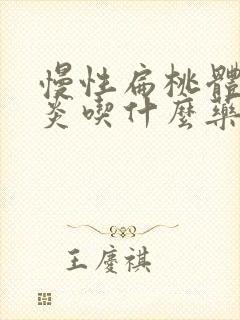 慢性扁桃體
炎喫什麼藥
王慶祺